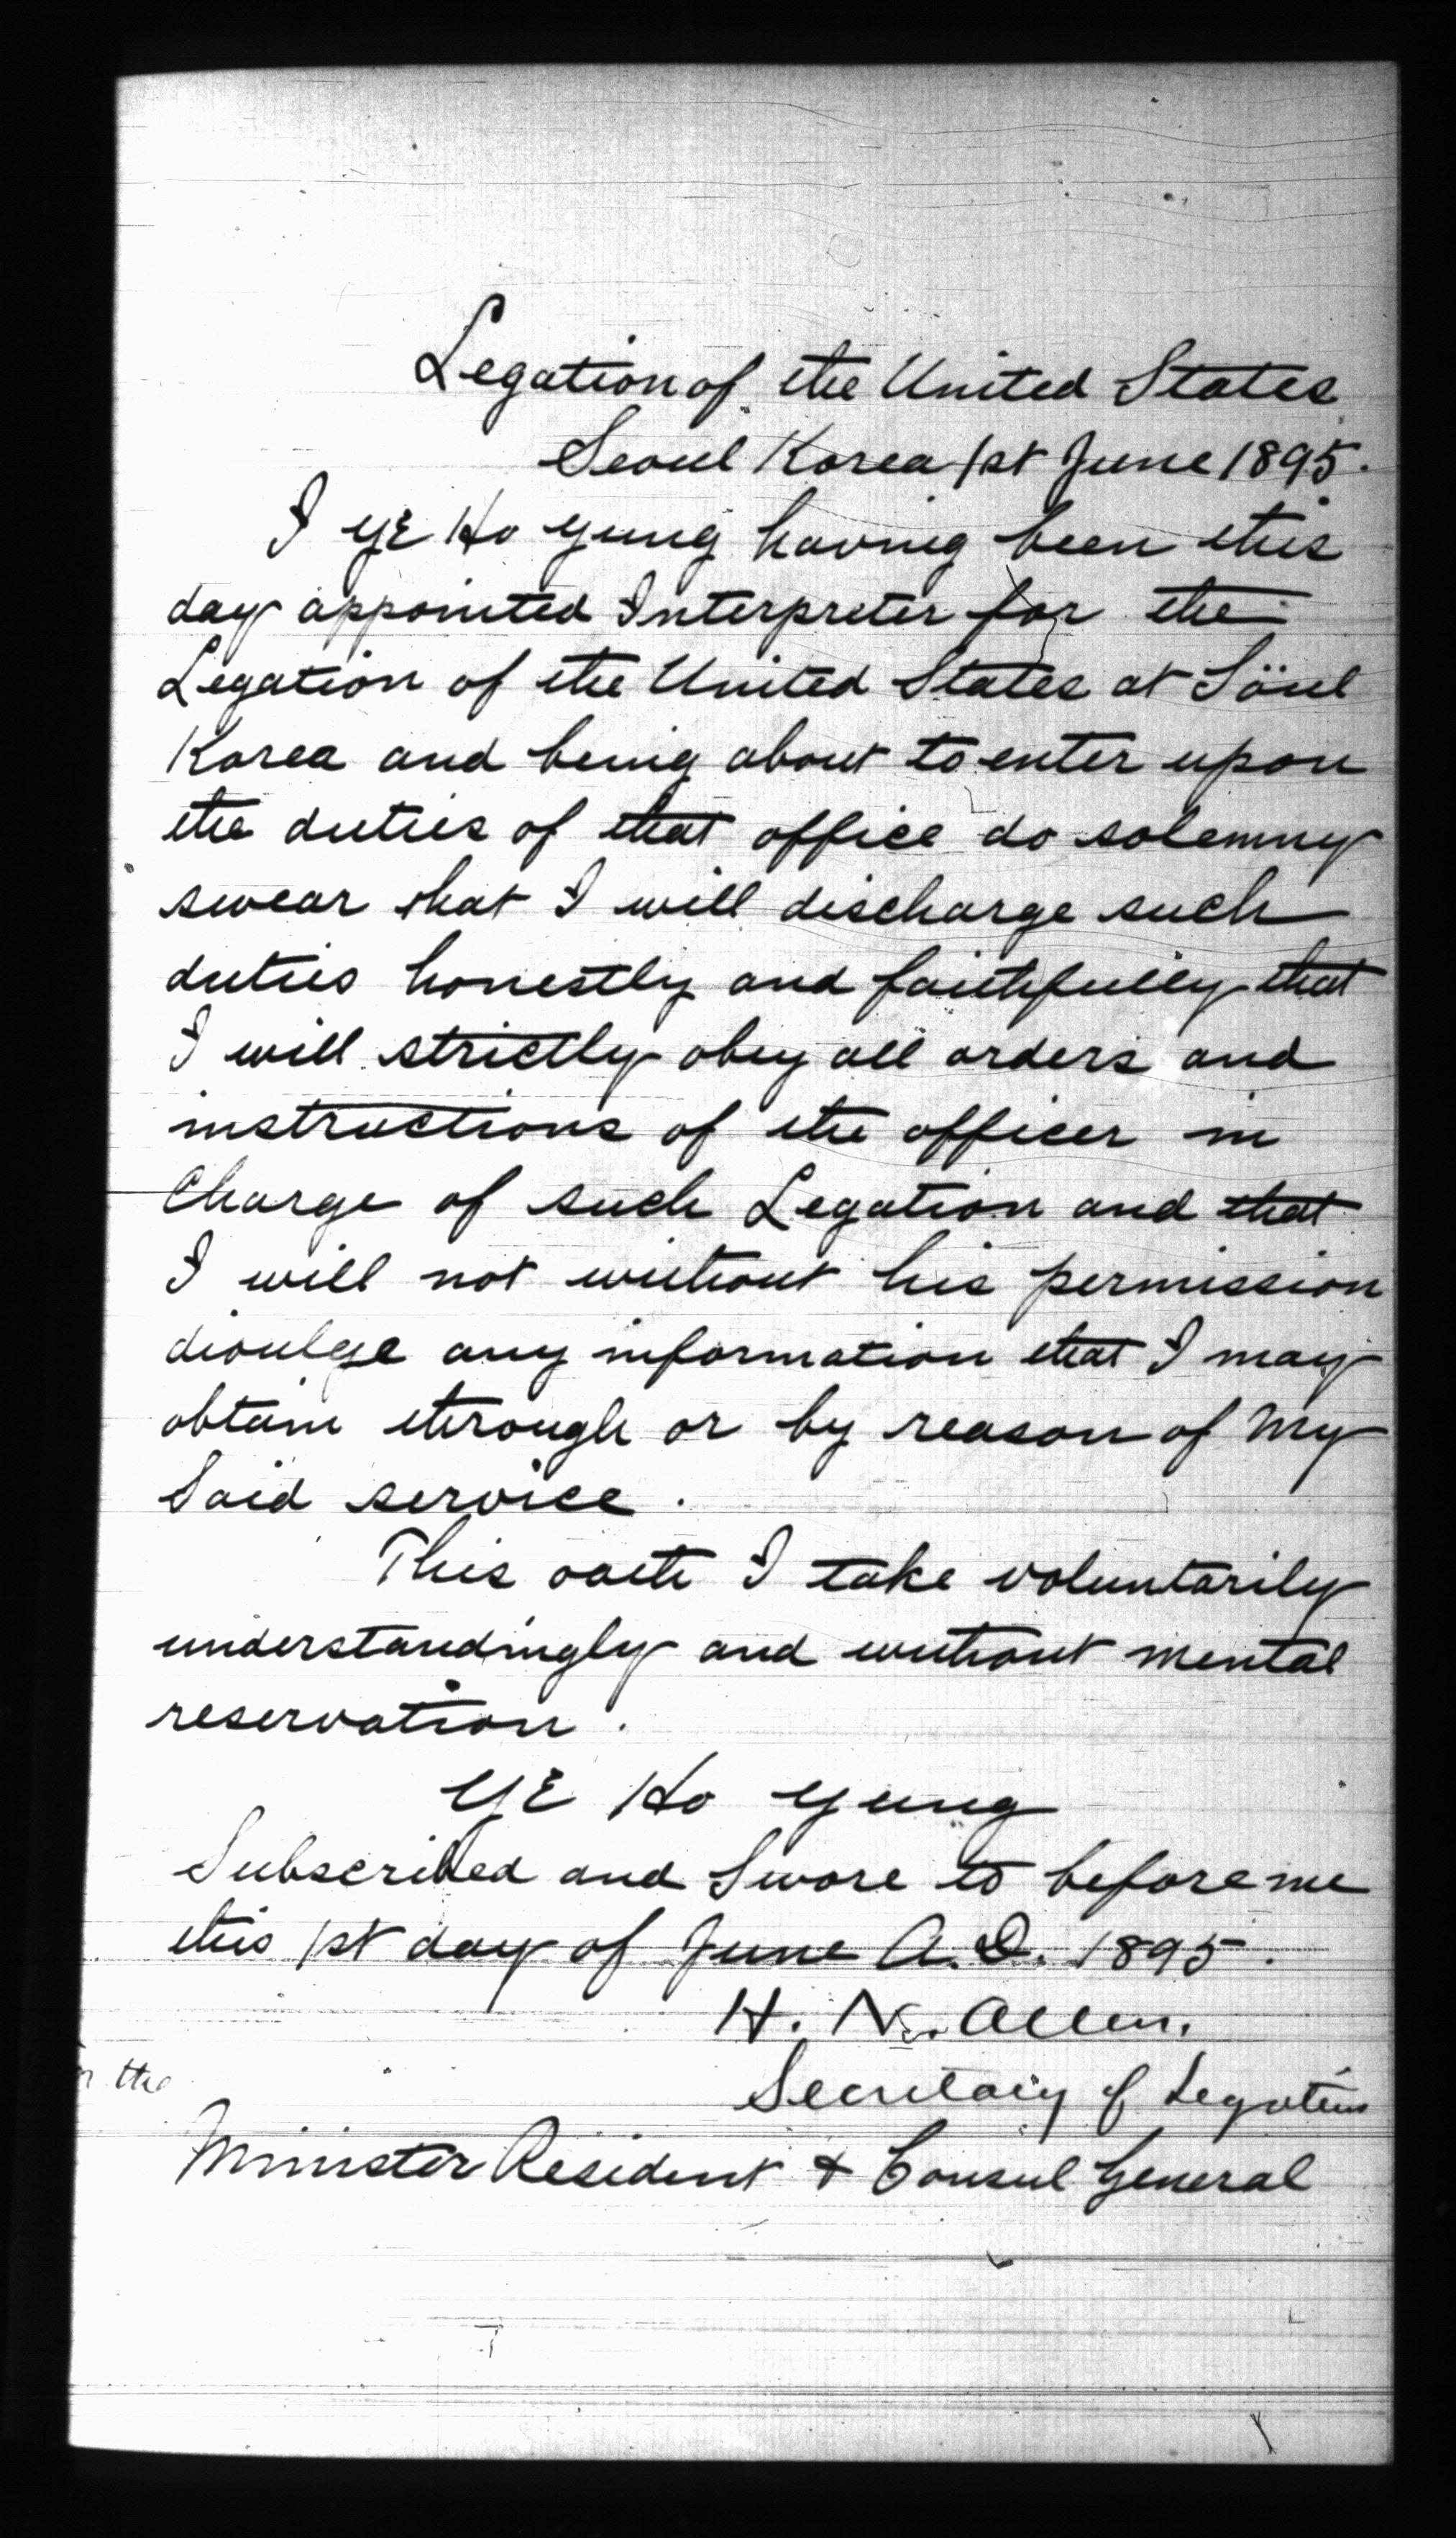 Legation of the United States
Seoul Korea 1st June 1895.
I Ye Ho Yung having been this
day appointed Interpreter for the
Legation of the United States at Söul
Korea and being about to enter upon
the duties of that office do solemny
swear that I will discharge such
duties honestly and faithfully that
I will strictly obey all orders and
instructions of the officer in
Charge of such Legation and that
I will not without his permission
divulge any information that I may
obtain through or by reason of My
Said service.
This oath I take voluntarily
understandingly and without mental
reservation.
Ye Ho Yung
Subscribed and Swore to before me
this 1st day of June A.D. 1895.
H. N. Allen.
Secretary of Legation
the
Minister Resident & Consul General